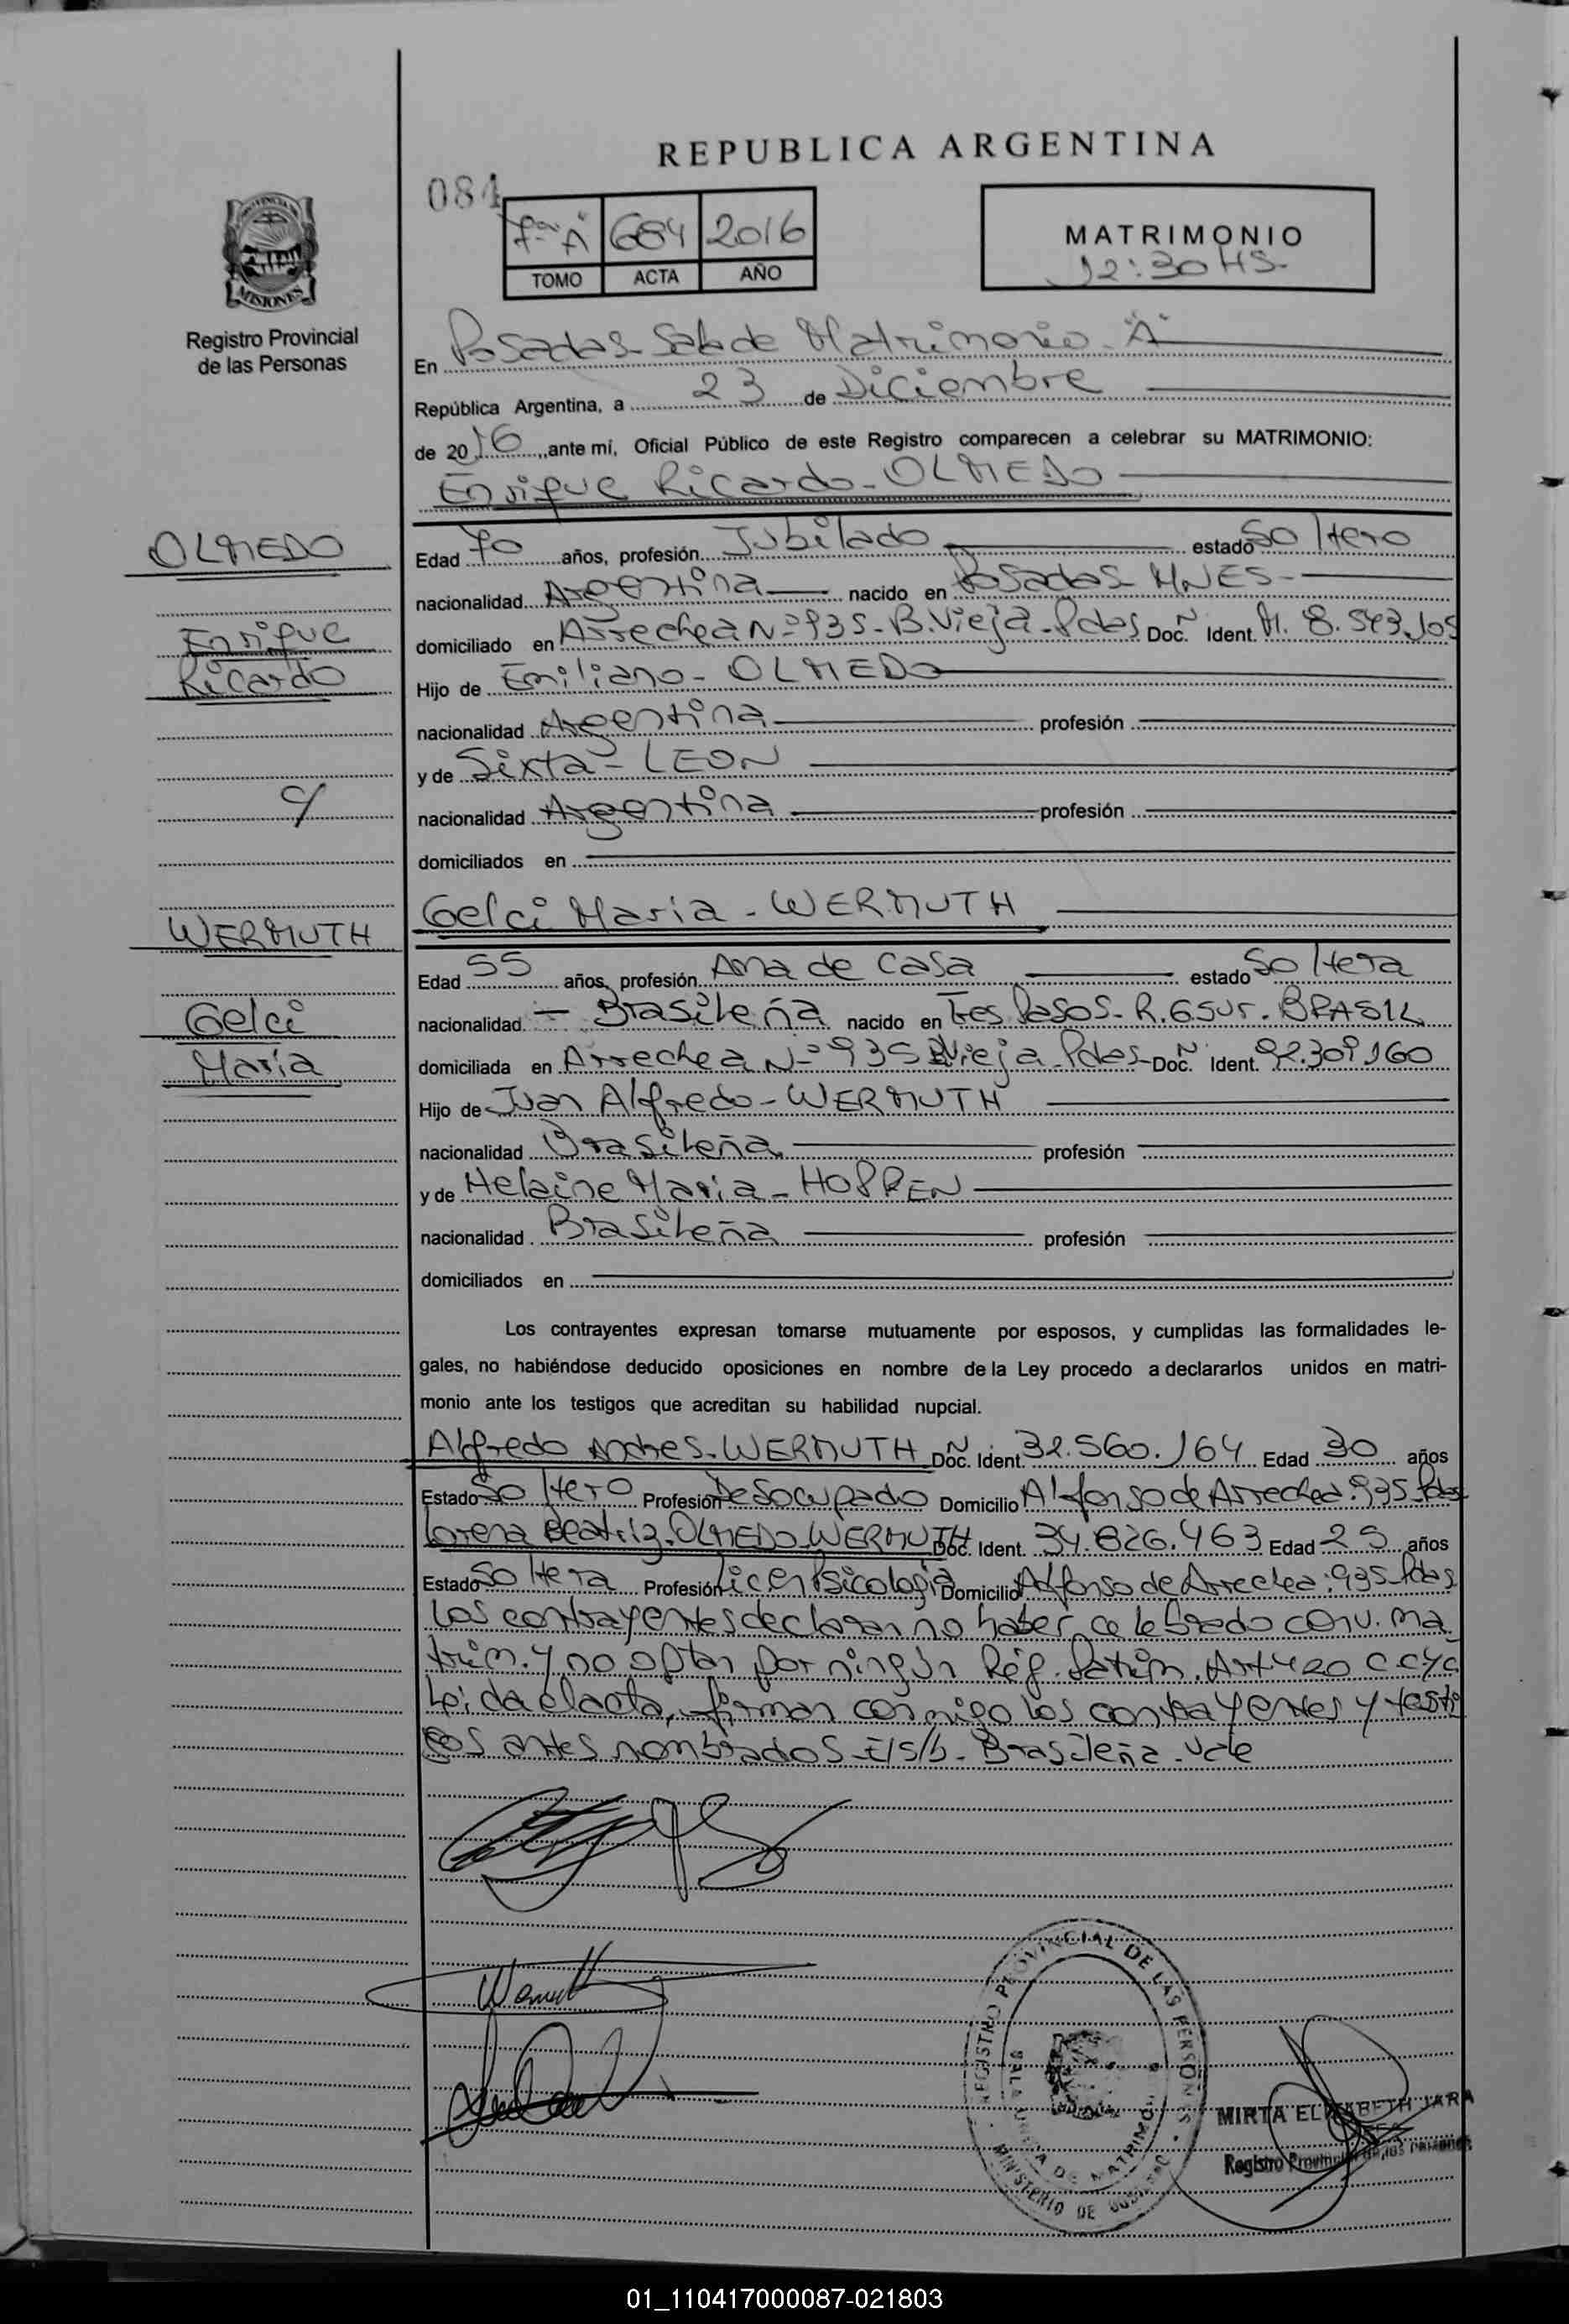 REPUBLICA ARGENTINA
084
7ª "A" 684 2016
TOMO ACTA AÑO
MATRIMONIO
12:30 HS.
MISIONES
Registro Provincial
de las Personas
En Posadas - Sala de Matrimonio - "A"
República Argentina, a 23 de Diciembre
de 2016, ante mí, Oficial Público de este Registro comparecen a celebrar su MATRIMONIO:
Enrique Ricardo - OLMEDO
OLMEDO
Enrique
Ricardo
Edad 70 años, profesión Jubilado estado Soltero
nacionalidad Argentina nacido en Posadas - MNES -
domiciliado en Arrechea Nº 935 - B. Vieja - Pdas Doc. Nº Ident. M. 8.543.105
Hijo de Emiliano - OLMEDO
nacionalidad Argentina profesión
y de Sixta - LEON
c/
nacionalidad Argentina profesión
domiciliados en
Gelci Maria - WERMUTH
WERMUTH
Gelci
Maria
Edad 55 años, profesión Ama de Casa estado Soltera
nacionalidad - Brasileña nacido en Tres Pasos - R. G Sur - BRASIL
domiciliada en Arrechea Nº 935 B. Vieja - Pdas - Doc. Nº Ident. 92.309.160
Hijo de Juan Alfredo - WERMUTH
nacionalidad Brasileña profesión
y de Helaine Maria - HOPPEN
nacionalidad Brasileña profesión
domiciliados en
Los contrayentes expresan tomarse mutuamente por esposos, y cumplidas las formalidades le-
gales, no habiéndose deducido oposiciones en nombre de la Ley procedo a declararlos unidos en matri-
monio ante los testigos que acreditan su habilidad nupcial.
Alfredo Andres - WERMUTH Doc. Nº Ident. 32.560.164 Edad 30 años
Estado Soltero Profesión Desocupado Domicilio Alfonso de Arrechea: 935 - Pdas
Lorena Beatriz - OLMEDO WERMUTH Doc. Ident. 34.826.463 Edad 25 años
Estado Soltera Profesión Licen Psicologia Domicilio Alfonso de Arrechea: 935 - Pdas
Los contrayentes declaran no haber celebrado conv. ma
trim. y no optan por ningún Rég. Patrim. Art 420 C C y C
Leida el acta, firman conmigo los contrayentes y testi
gos antes nombrados - E/S/b - Brasileña - Vale
Wermuth
REGISTRO PROVINCIAL DE LAS PERSONAS
MINISTERIO DE GOBIERNO
MIRTA ELIZABETH JARA
Registro Provincial de las Personas
01_110417000087-021803